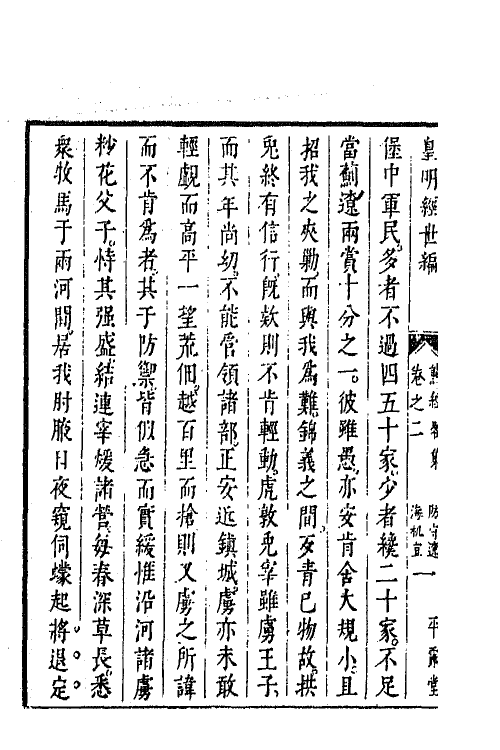 皇明經世編
卷之二
平露堂
堡中軍民多者不過四五十家少者纔二十家不足
當薊遼兩賞十分之一彼雖愚亦安肯舍大規小且
招我之夾勦而與我為難錦義之間歹青已物故拱
兔終有信行既欵則不肯輕動虎敦兔宰雖虜王子
而其年尚幼不能管領諸部正安近鎮城虜亦未敢
輕覷而高平一望荒佃越百里而搶則又虜之所諱
而不肯為者其于防禦皆似急而實緩惟沿河諸虜
粆花父子恃其强盛結連宰煖諸營每春深草長悉
衆牧馬于兩河間居我肘腋日夜窺伺蠓起將退定